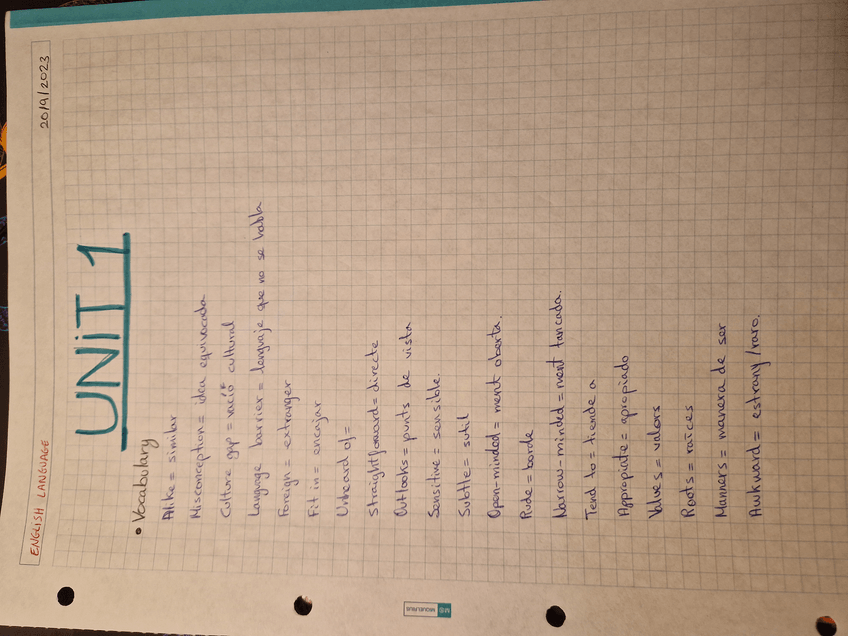 ENGLISH LANGUAGE 20/9/2023
UNIT 1
• Vocabulary
Alike = similar
Misconception = idea equivocada
Culture gap = vacío cultural
Language barrier = lenguaje que no se habla
Foreign = extranger
Fit in = encajar
Unheard of =
Straightforward = directe
Outlooks = punts de vista
Sensitive = sensible.
Subtle = sutil
Open-minded = ment oberta.
Rude = borde
Narrow-minded = ment tancada.
Tend to = tiende a
Appropiate = apropiado
Values = valors
Roots = raíces
Manners = manera de ser
Awkward = estrany/raro.
MIQUELRIUS